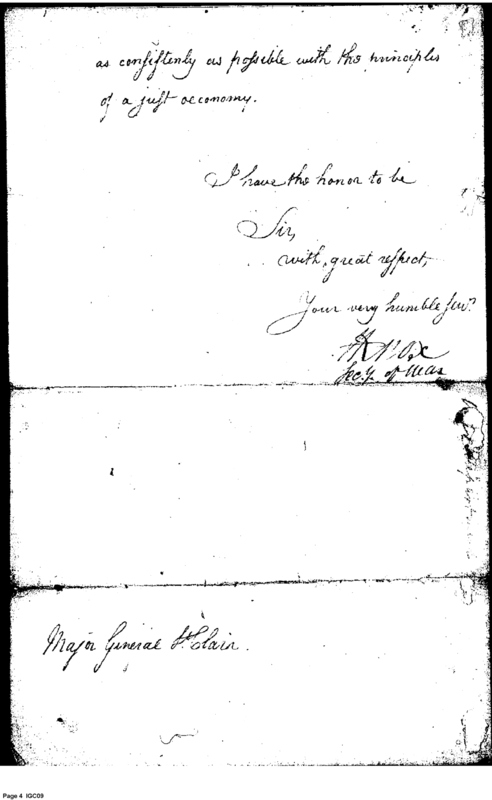 as consistently as possible with the principles
of a just oeconomy.
I have the honor to be
Sir,
with great respect,
Your very humble serv.t
HKnox
Secy. of War
Major General St. Clair.
Page 4 IGC09